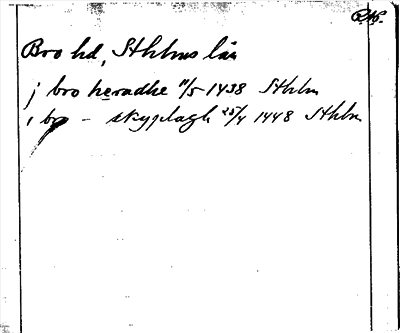 RAp.
Bro hd, Sthlms län
j bro heradhe 11/5 1438 Sthlm
i bro – skyplagh 25/4 1448 Sthlm